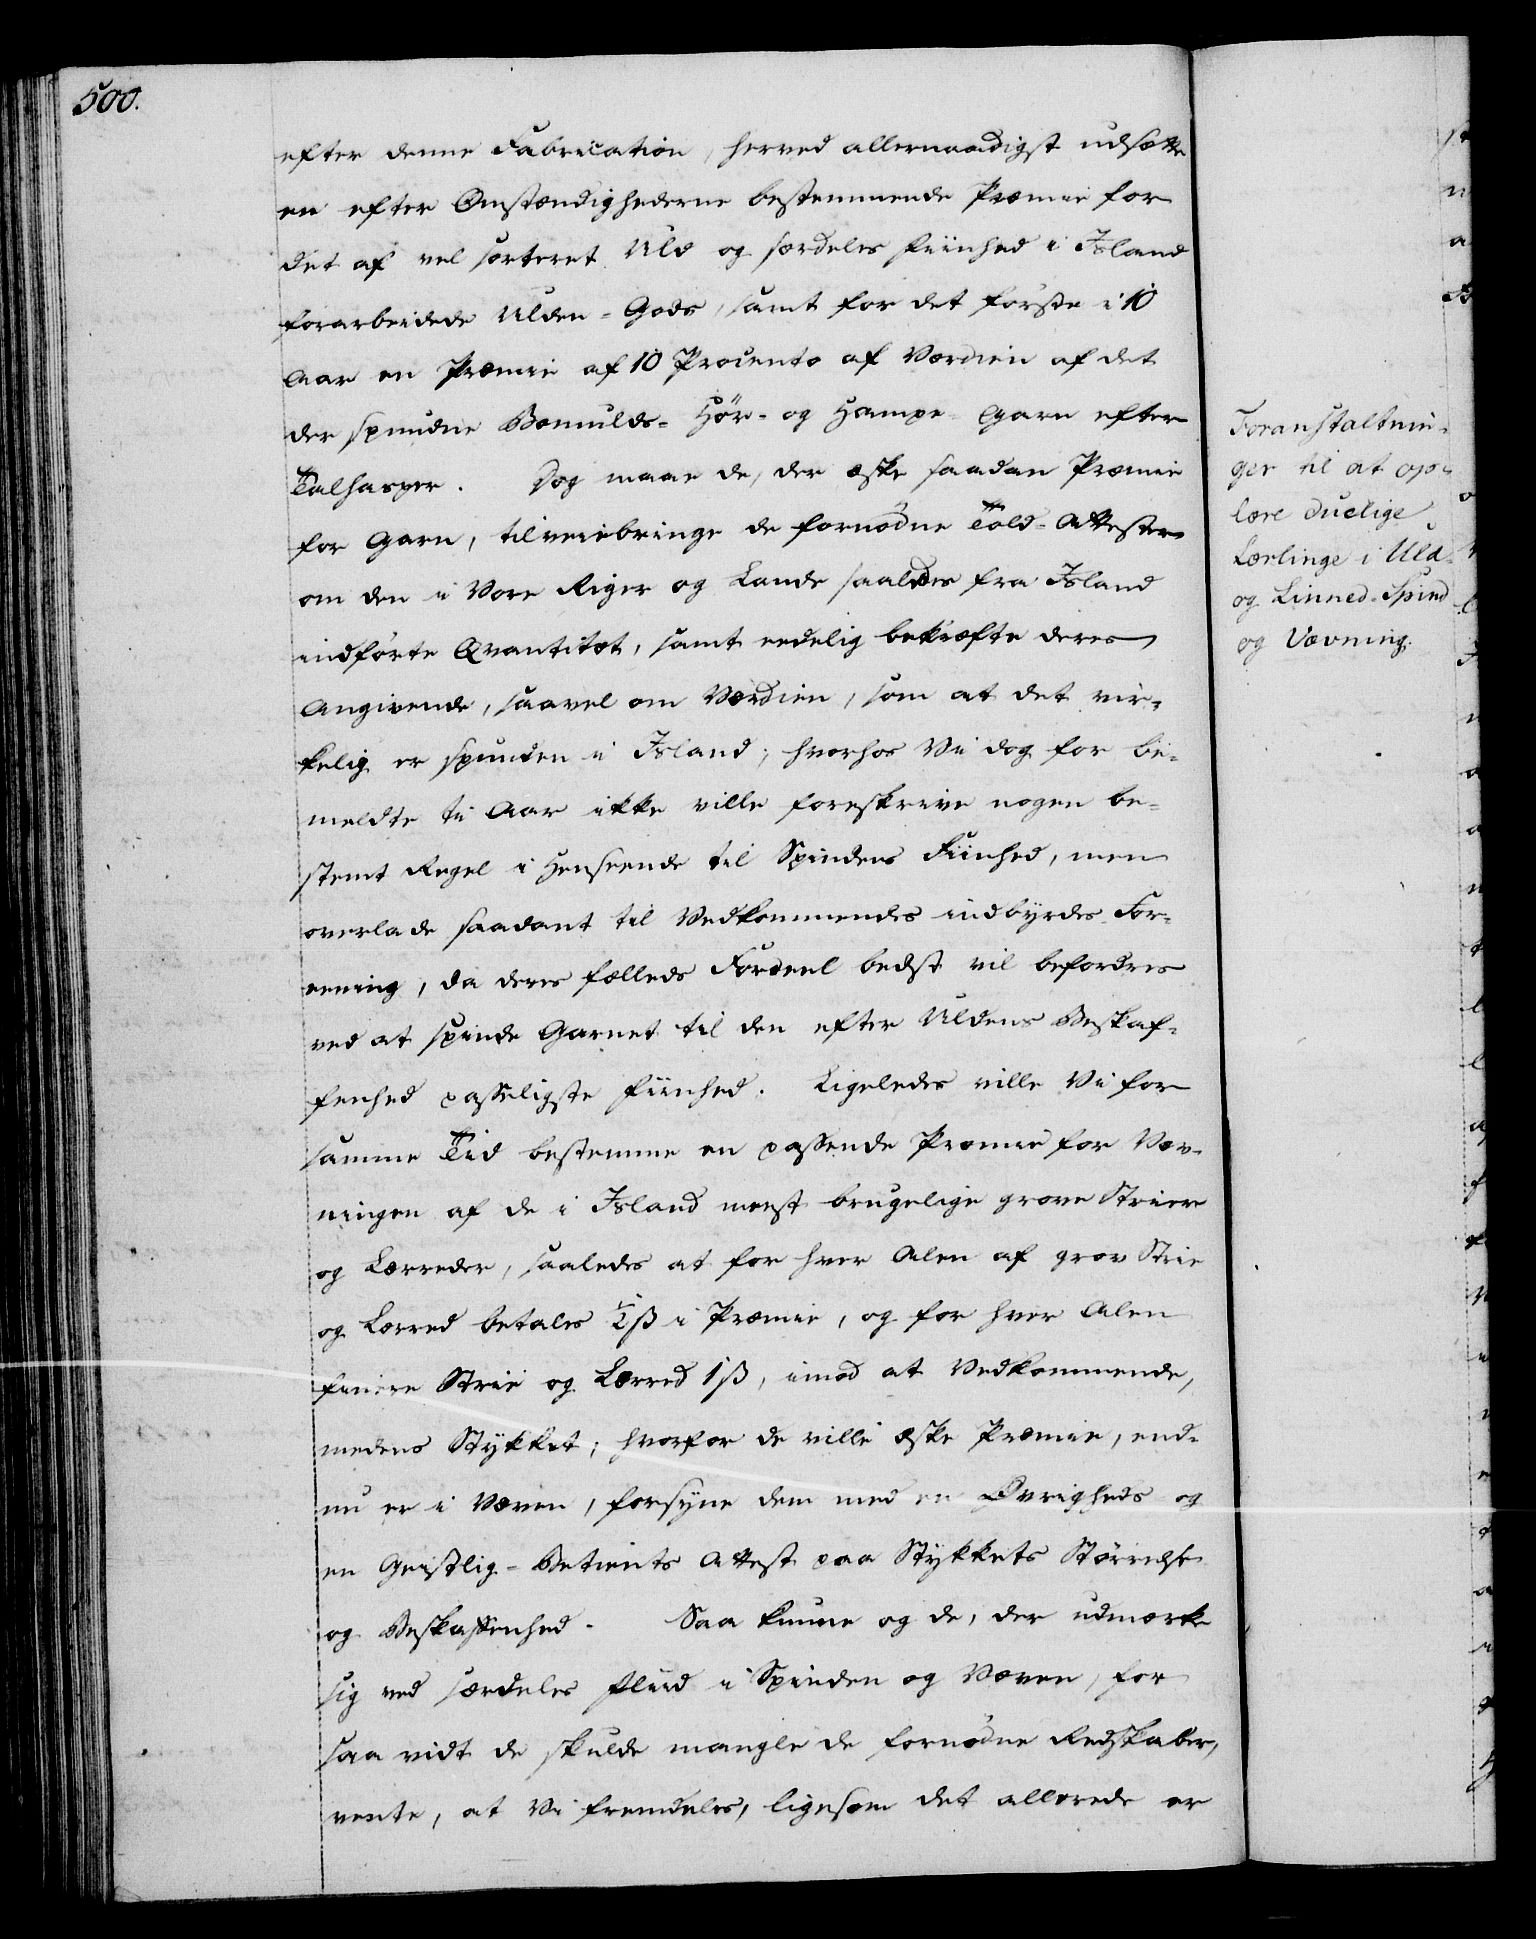 500.
efter denne Fabrication, herved allernaadigst udsætte
en efter Omstændighederne bestemmende Præmie for
det af vel sorteret Uld og særdeles Fiinhed i Island
forarbeidede Ulden-Gods, samt for det første i 10
Aar en Præmie af 10 Procento af Værdien af det
der spundne Bomulds- Hør- og Hampe-Garn efter
Talhasper. Dog maae de, der æske saadan Præmie
for Garn, tilveiebringe de fornødne Told-Attester
om den i Vore Riger og Lande saaledes fra Island
indførte Qvantitæt, samt eedelig bekræfte deres
Angivende, saavel om Værdien, som at det vir-
kelig er spunden i Island; hvorhos Vi dog for be-
meldte ti Aar ikke ville foreskrive nogen be-
stemt Regel i Henseende til Spindens Fiinhed, men
overlade saadant til Vedkommendes indbyrdes For-
eening, da deres fælleds Fordeel bedst vil befordres
ved at spinde Garnet til den efter Uldens Beskaf-
fenhed passeligste Fiinhed. Ligeledes ville Vi for
samme Tid bestemme en passende Præmie for Væv-
ningen af de i Island meest brugelige grove Strier
og Lærreder, saaledes at for hver Alen af grov Strie
og Lærred betales ½ ß i Præmie, og for hver Alen
finere Strie og Lærred 1 ß, imod at Vedkommende,
medens Stykket, hvorfor de ville æske Præmie, end-
nu er i Væven, forsyne dem med en Øvrigheds- og
en Geistlig-Betients Attest paa Stykkets Størrelse
og Beskaffenhed. Saa kunne og de, der udmærke
sig ved særdeles Fliid i Spinden og Væven, for
saa vidt de skulde mangle de fornødne Redskaber,
vente, at Vi fremdeles, ligesom det allerede er
Foranstaltnin-
ger til at op-
lære duelige
Lærlinge i Uld-
og Linned-Spind
og Vævning.